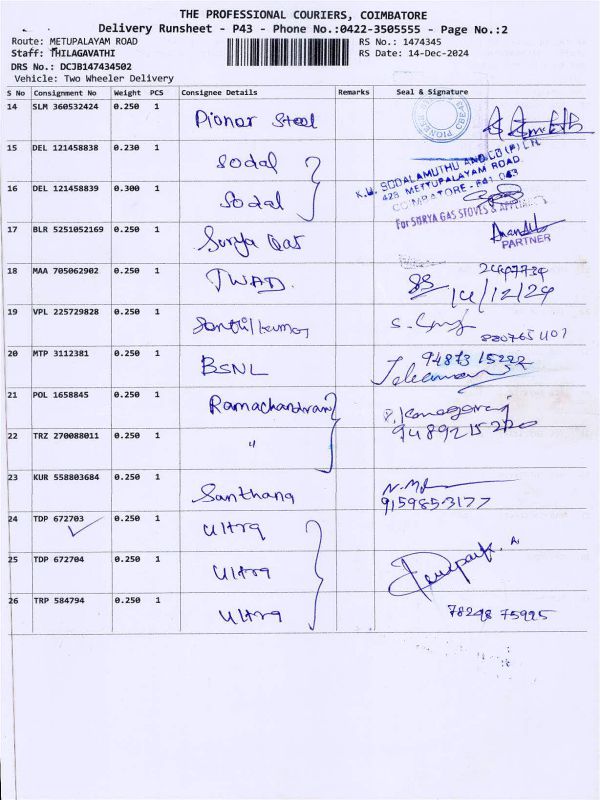 THE PROFESSIONAL COURIERS, COIMBATORE
Delivery Runsheet - P43 - Phone No.:0422-3505555 - Page No.:2
Route: METUPALAYAM ROAD RS No.: 1474345
Staff: THILAGAVATHI RS Date: 14-Dec-2024
DRS No.: DCJB147434502
Vehicle: Two Wheeler Delivery
S No Consignment No Weight PCS Consignee Details Remarks Seal & Signature
14 SLM 360532424 0.250 1 Pionor Steel
PIONEER
15 DEL 121458838 0.230 1 Sodal
K.U. SODALAMUTHU AND CO (P) LTD
428, METTUPALAYAM ROAD
COIMBATORE - 641 043
16 DEL 121458839 0.300 1 Sodal
For SURYA GAS STOVES &
17 BLR 5251052169 0.250 1 Surya Gas
PARTNER
18 MAA 705062902 0.250 1 TWAD. 2497734
14/12/24
19 VPL 225729828 0.250 1 Senthilkumar
20 MTP 3112381 0.250 1 BSNL 94873 15222
21 POL 1658845 0.250 1 Ramachandran
22 TRZ 270088011 0.250 1 "
23 KUR 558803684 0.250 1 Santhana
9159853177
24 TDP 672703 0.250 1 Ultra
25 TDP 672704 0.250 1 Ultra
26 TRP 584794 0.250 1 Ultra